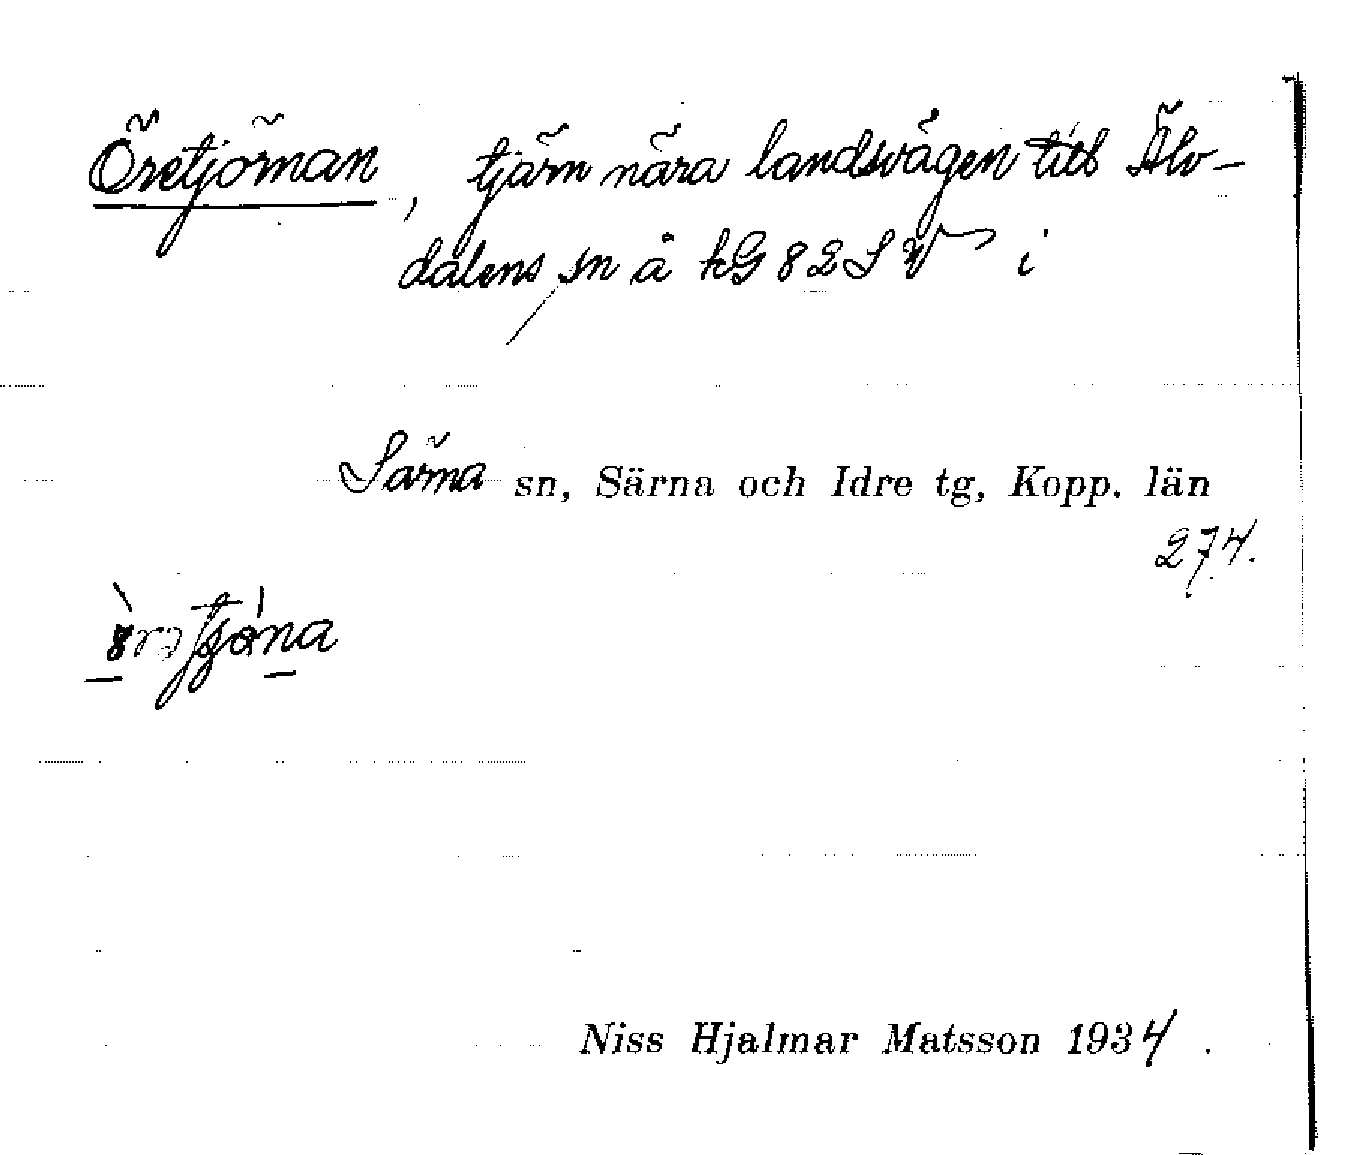 Öretjörnan, tjärn nära landsvägen till Älv-
dalens sn å kG 82 S V i
Särna sn, Särna och Idre tg, Kopp. län
274.
Niss Hjalmar Matsson 1934.